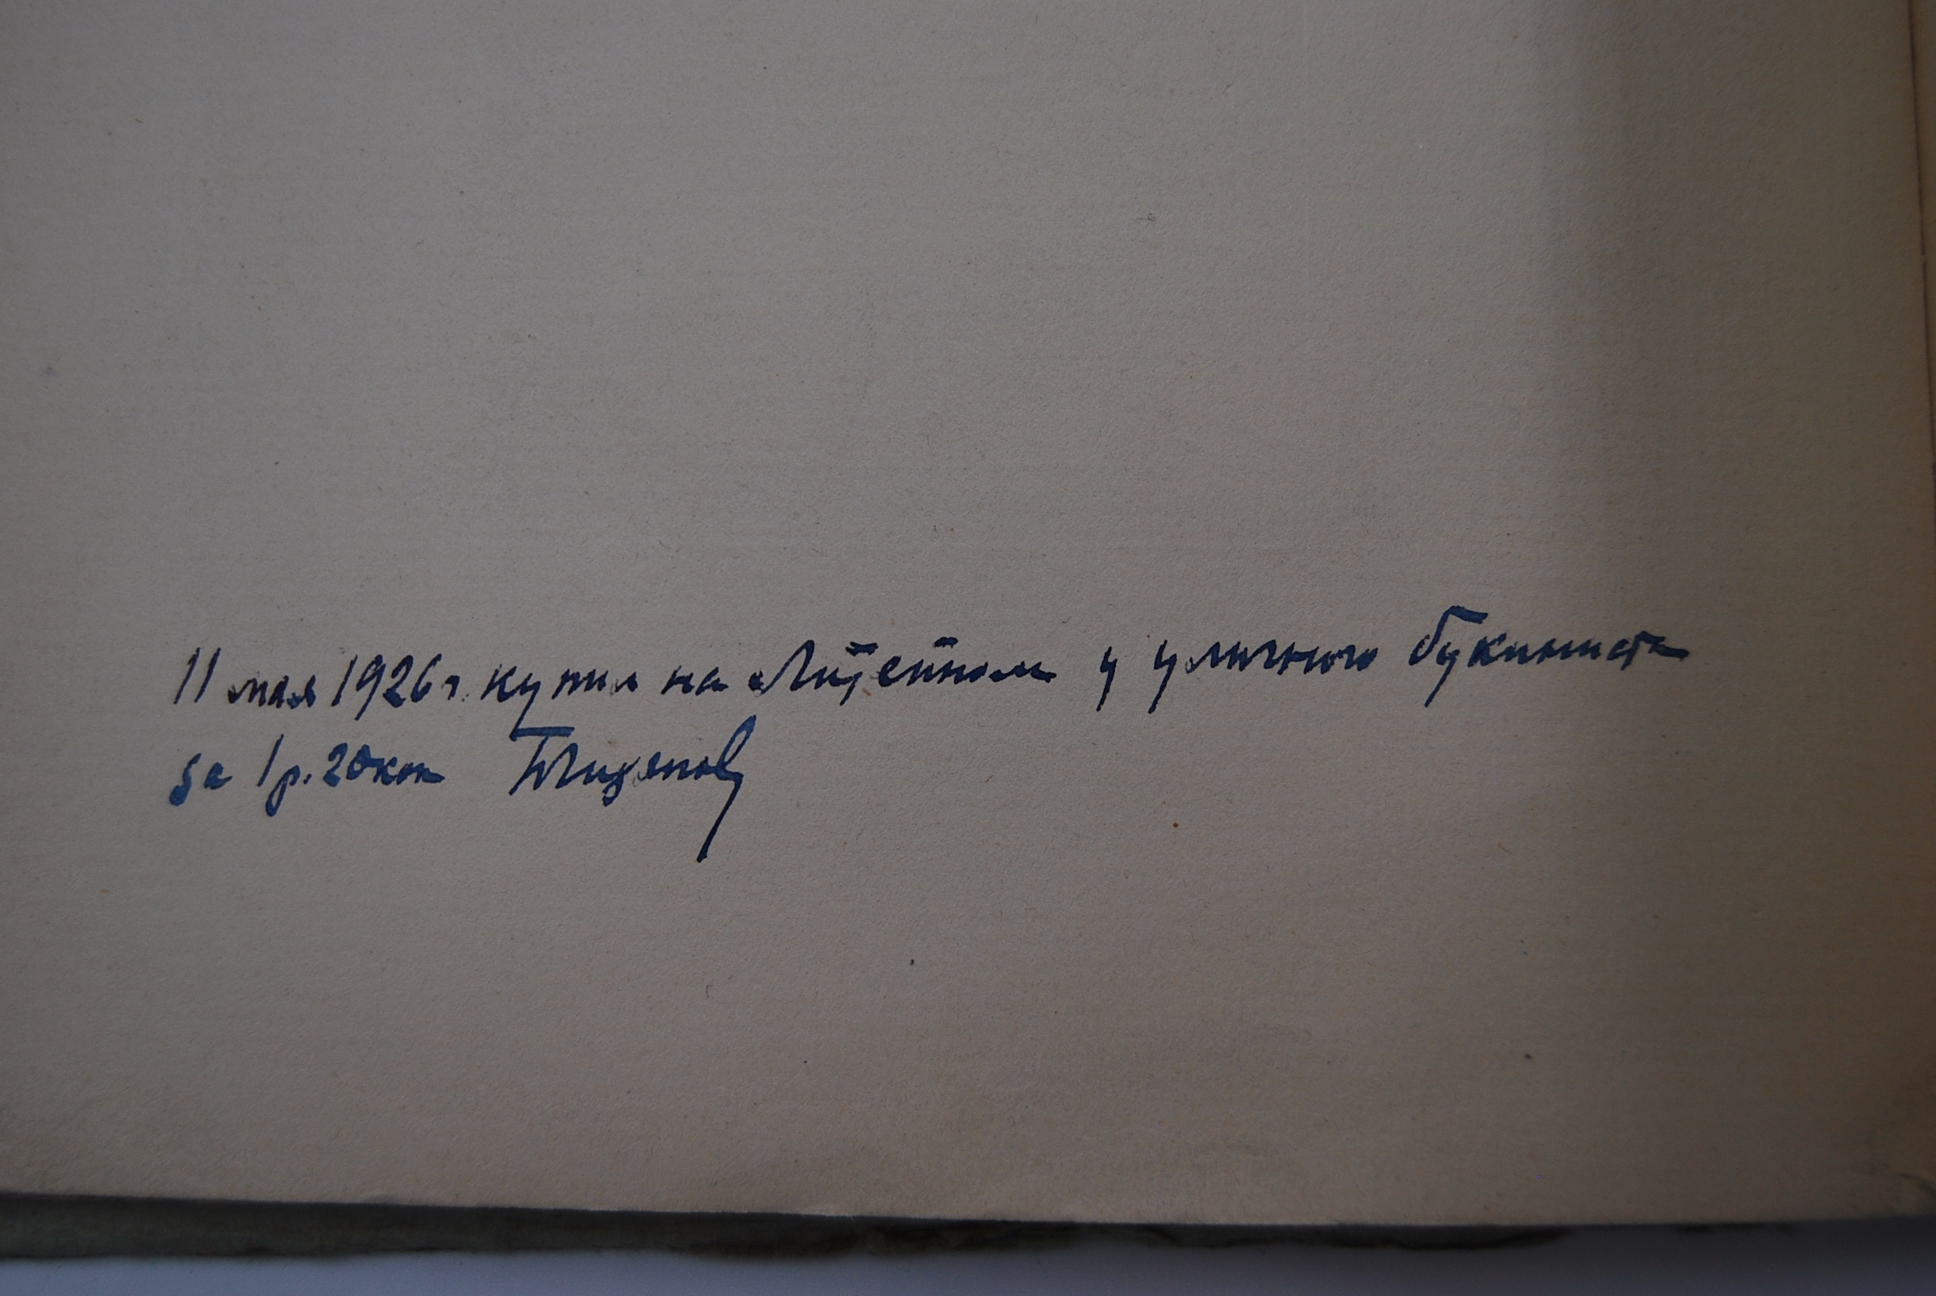 11 мая 1926 г. купил на Литейном у уличного букиниста
за 1 р. 20 коп